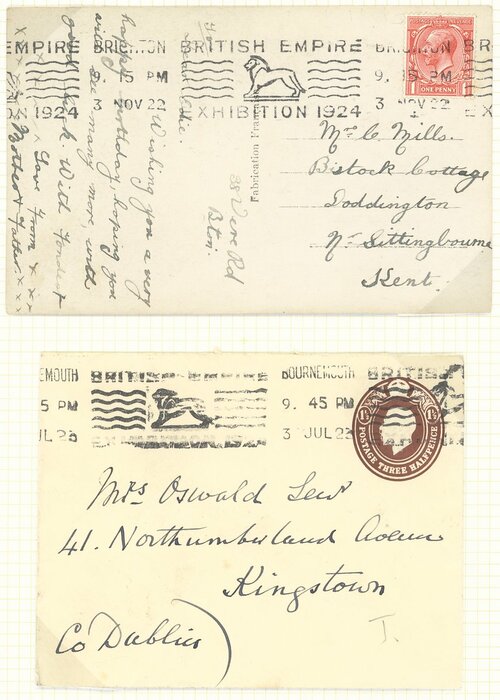 EMPIRE BRIGHTON BRITISH EMPIRE BRIGHTON BR
9. 15 PM 9. 15 PM
ON 1924 3 NOV 22 EXHIBITION 1924 3 NOV 22 EX
POSTAGE REVENUE
1 ONE PENNY 1
38 Vere Rd
Bton.
Wishing you a very
happy birthday, hoping you
will see many more, with
good luck With Fondest
x x x Love from x x x
Mother & Father. x x x
Fabrication
Mrs C Mills.
Bistock Cottage
Doddington
Nr. Sittingbourne
Kent.
EMOUTH BRITISH EMPIRE BOURNEMOUTH BRITISH
5 PM 9. 45 PM
JUL 23 EXHIBITION 1924 3 JUL 23
1½ 1½
POSTAGE THREE HALFPENCE
Mrs Oswald
41. Northumberland Avenue
Kingstown
Co Dublin
T.